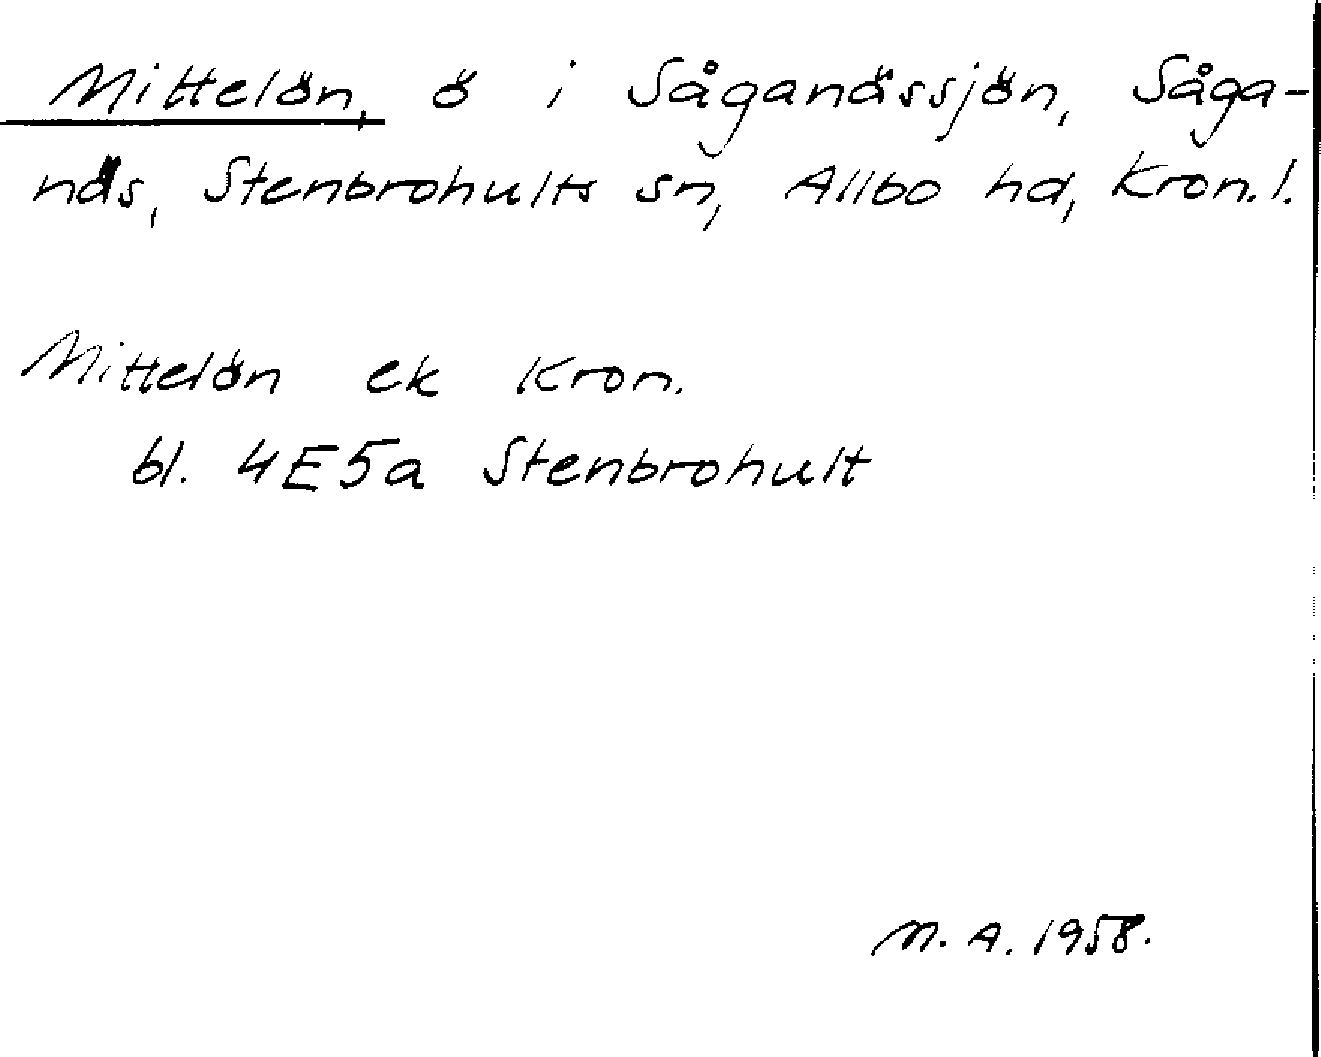 Mittelön, ö i Såganässjön, Såga-
näs, Stenbrohults sn, Allbo hd, Kron. l.
Mittelön ek Kron.
bl. 4E5a Stenbrohult
M. A. 1958.